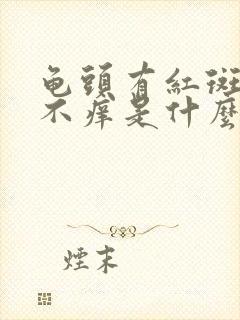 龟頭有紅斑
不痒是什麽
煙末